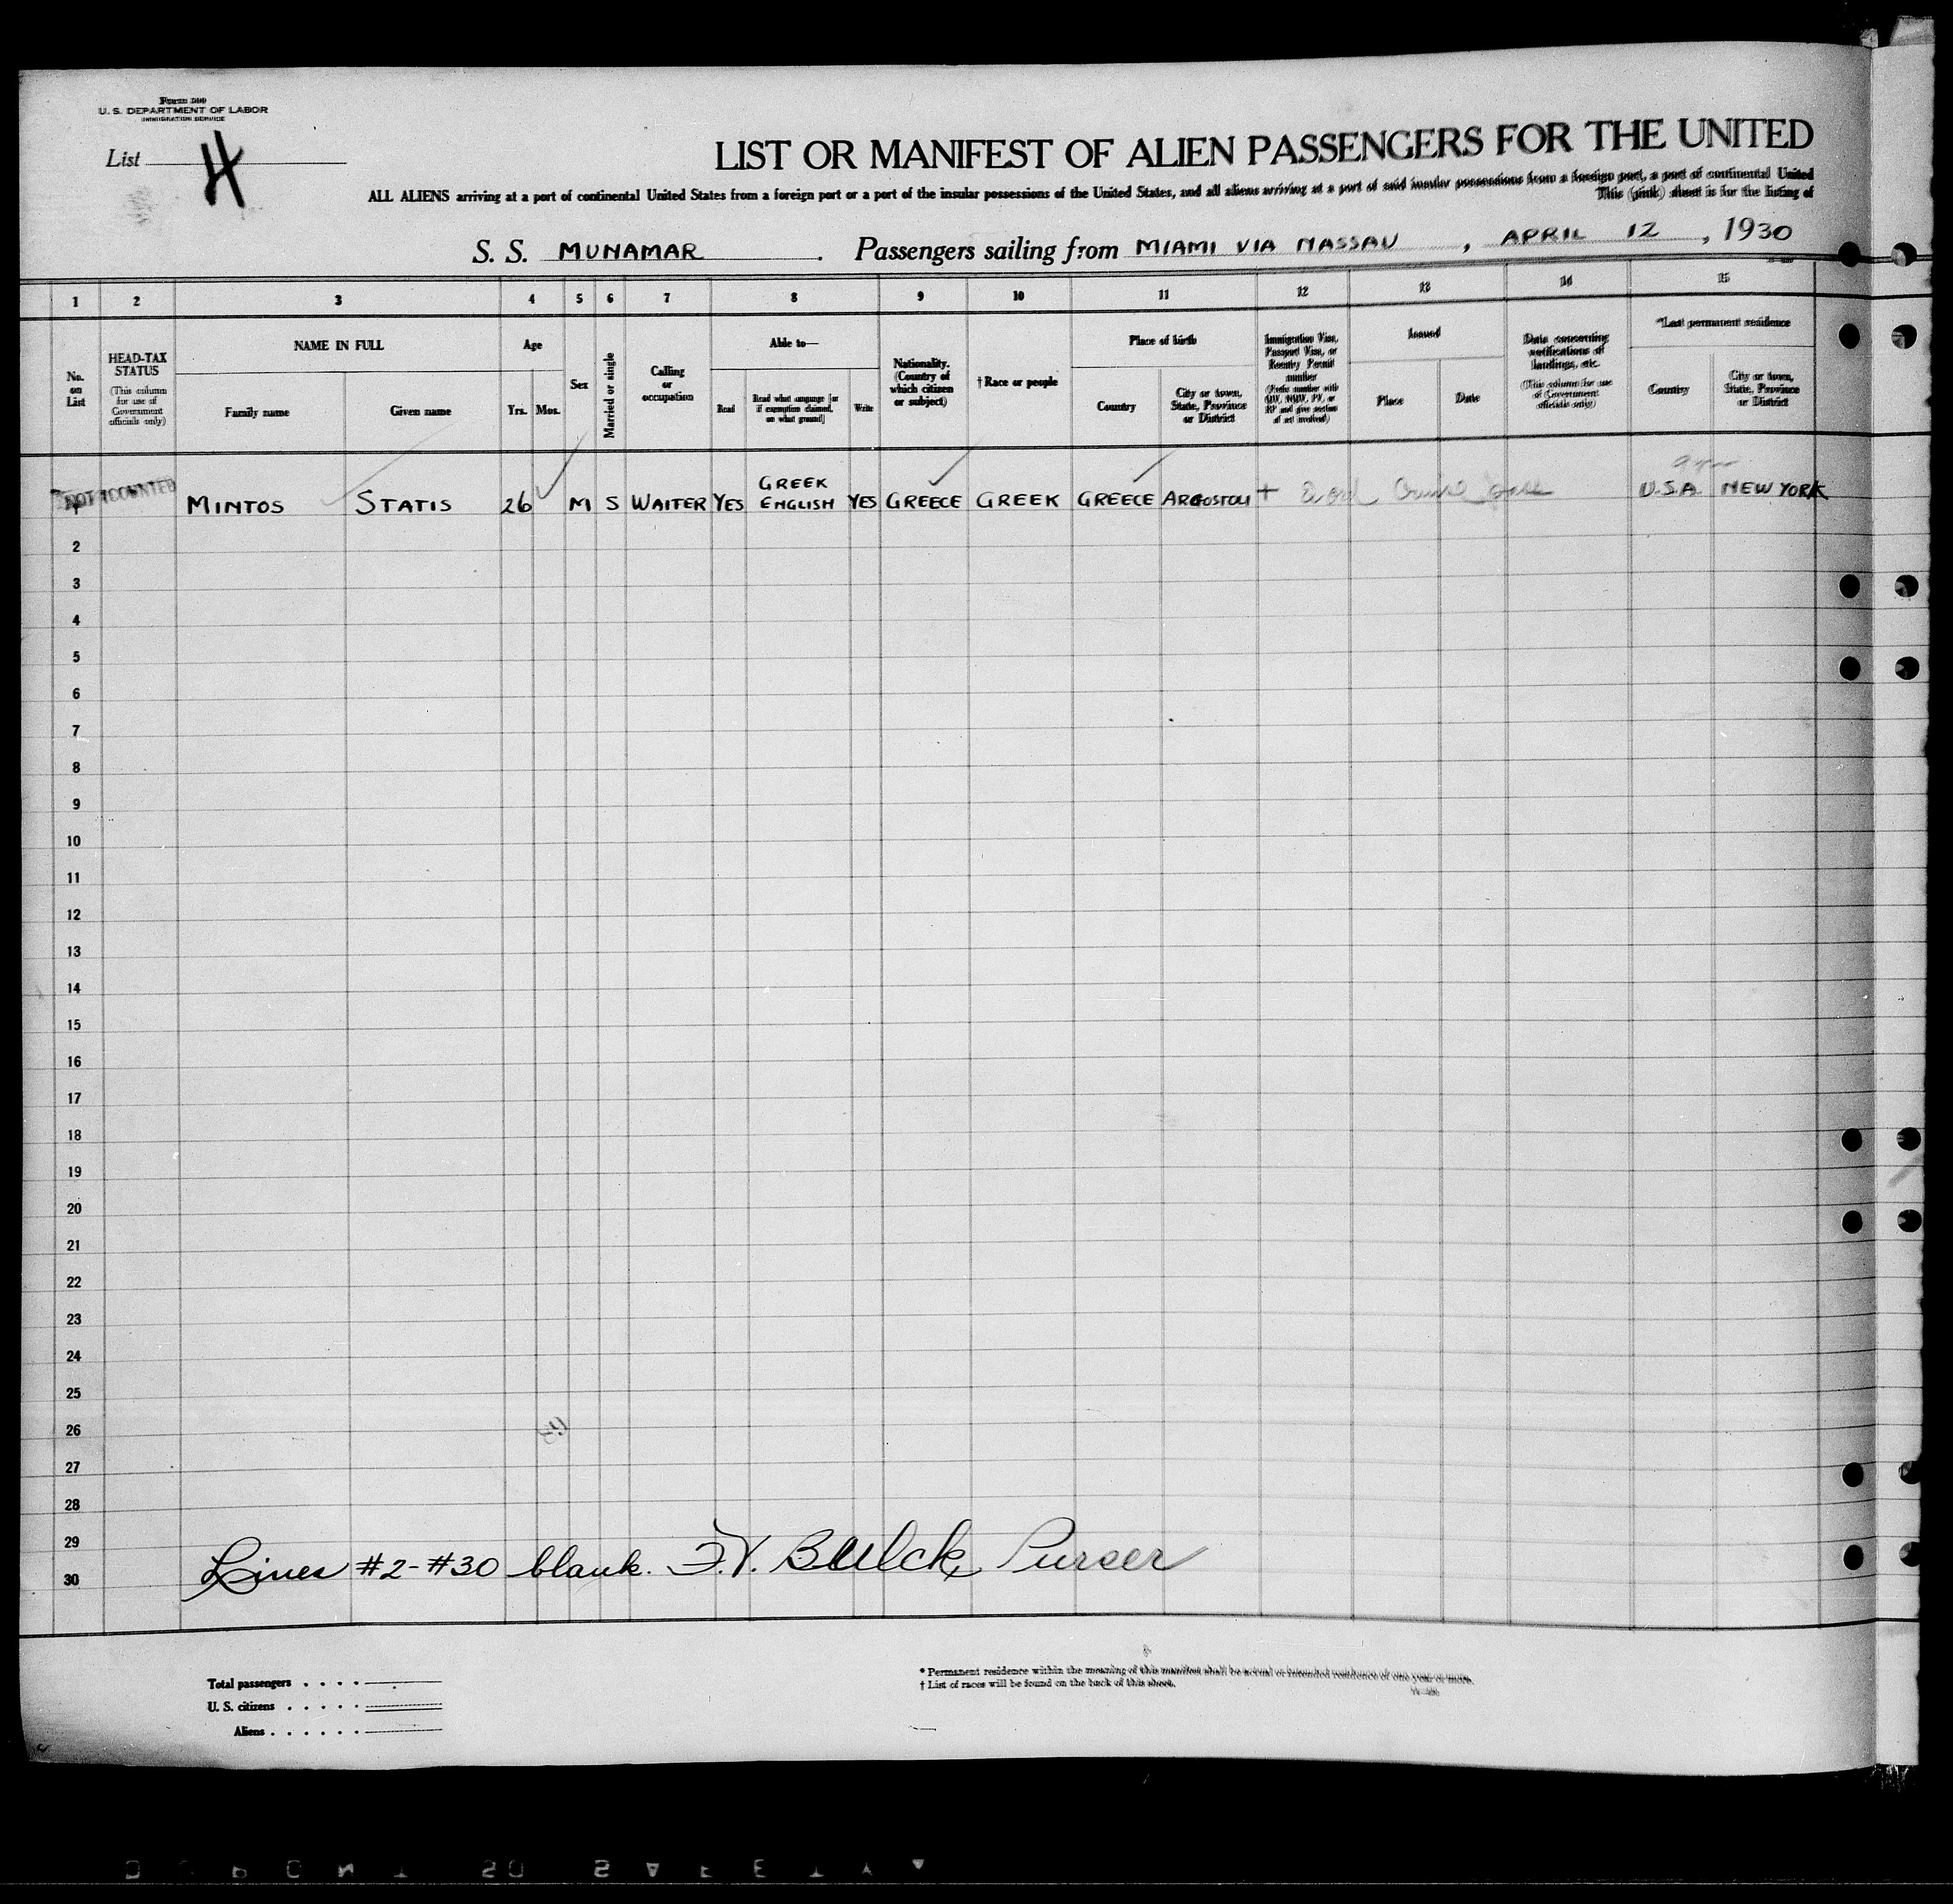 Form 500
U. S. DEPARTMENT OF LABOR
IMMIGRATION SERVICE
List 4
LIST OR MANIFEST OF ALIEN PASSENGERS FOR THE UNITED
ALL ALIENS arriving at a port of continental United States from a foreign port or a port of the insular possessions of the United States, and all aliens arriving at a port of said insular possessions from a foreign port, a port of continental United
This (pink) sheet is for the listing of
S. S. MUNAMAR . Passengers sailing from MIAMI VIA NASSAU , APRIL 12 , 1930
1 2 3 4 5 6 7 8 9 10 11 12 13 14 15
No. on List
HEAD-TAX STATUS
(This column for use of Government officials only)
NAME IN FULL
Family name
Given name
Age
Yrs.
Mos.
Sex
Married or single
Calling or occupation
Able to—
Read
Read what language [or if exemption claimed, on what ground]
Write
Nationality. (Country of which citizen or subject)
† Race or people
Place of birth
Country
City or town, State, Province or District
Immigration Visa, Passport Visa, or Reentry Permit number
(Prefix number with QIV, NQIV, PV, or RP and give section of act involved)
Issued
Place
Date
Data concerning verifications of landings, etc.
(This column for use of Government officials only)
*Last permanent residence
Country
City or town, State, Province or District
NOT COUNTED
MINTOS STATIS 26 M S WAITER YES GREEK ENGLISH YES GREECE GREEK GREECE ARGOSTOLI U.S.A. NEW YORK
2
3
4
5
6
7
8
9
10
11
12
13
14
15
16
17
18
19
20
21
22
23
24
25
26
27
28
29
30
Lines #2-#30 blank. Purser
Total passengers
U. S. citizens
Aliens
* Permanent residence within the meaning of this manifest shall be actual or intended residence of one year or more.
† List of races will be found on the back of this sheet.